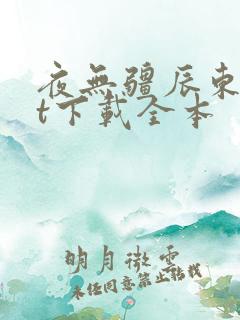 夜無疆辰東
t下載全本
明月微雲
未经同意禁止转载